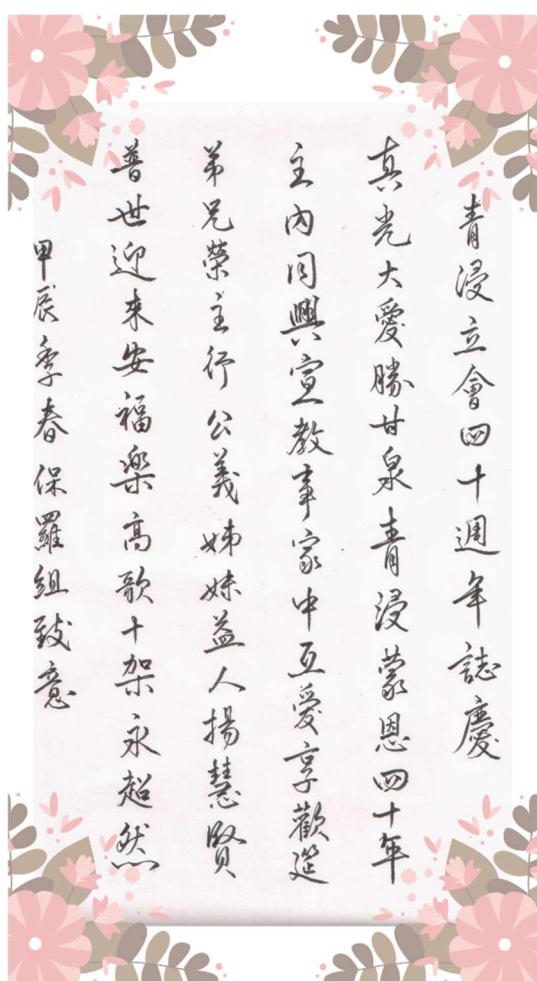 青浸立會四十週年誌慶
真光大愛勝甘泉青浸蒙恩四十年
主內同興宣教事家中互愛享歡筵
弟兄榮主行公義姊妹益人揚慧賢
普世迎來安福樂高歌十架永超然
甲辰季春保羅組致意